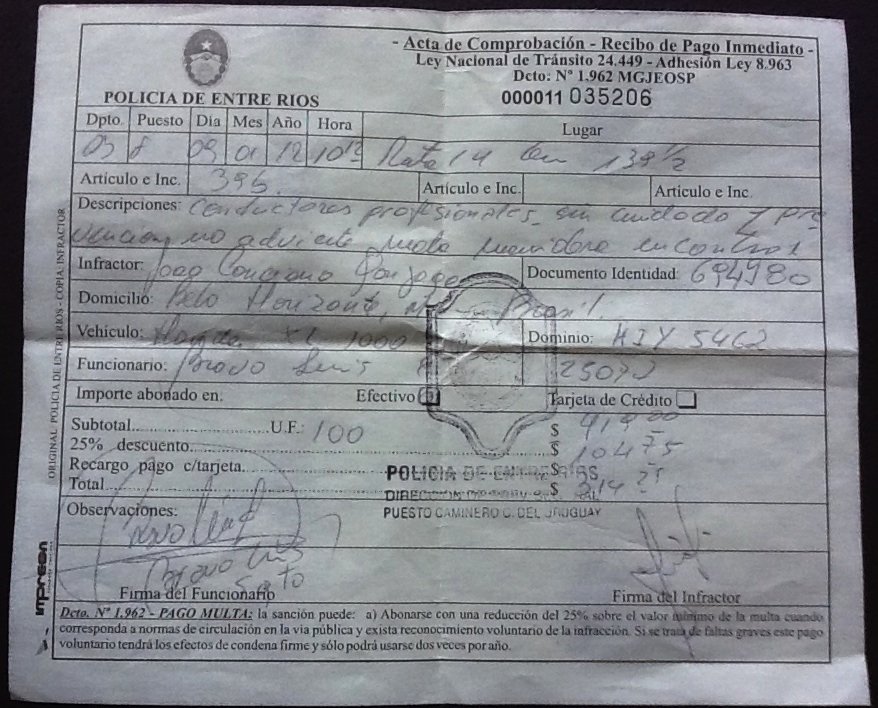 - Acta de Comprobación - Recibo de Pago Inmediato -
Ley Nacional de Tránsito 24.449 - Adhesión Ley 8.963
Dcto: Nº 1.962 MGJEOSP
POLICIA DE ENTRE RIOS
000011 035206
Dpto. Puesto Día Mes Año Hora Lugar
03 8 09 01 12 Ruta 14 139 1/2
Artículo e Inc. 396 Artículo e Inc. Artículo e Inc.
Descripciones: Conductores profesionales sin cuidado y pre
vencion, no advierte maniobra en control
Infractor: Joao Documento Identidad: 694980
Domicilio: Belo Horizonte, Brasil.
Vehículo: Honda XL 1000 Dominio: HIY 5462
Funcionario: Bravo Luis
Importe abonado en: Efectivo Tarjeta de Crédito
Subtotal U.F.: 100 $ 419 00
25% descuento $ 104 75
Recargo pago c/tarjeta $
Total $ 314 25
POLICIA DE ENTRE RIOS
PUESTO CAMINERO C. DEL URUGUAY
Observaciones:
Bravo Luis
Sgto
Firma del Funcionario Firma del Infractor
Dcto. Nº 1.962 - PAGO MULTA: la sanción puede: a) Abonarse con una reducción del 25% sobre el valor mínimo de la multa cuando
corresponda a normas de circulación en la via pública y exista reconocimiento voluntario de la infracción. Si se trata de faltas graves este pago
voluntario tendrá los efectos de condena firme y sólo podrá usarse dos veces por año.
ORIGINAL: POLICIA DE ENTRE RIOS - COPIA: INFRACTOR